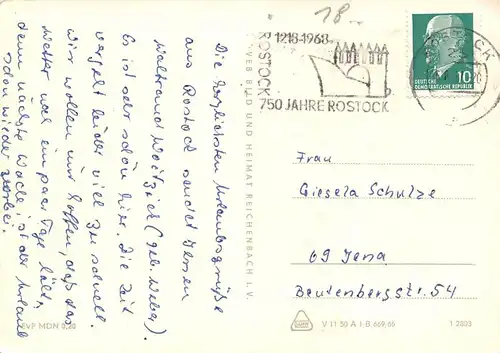 18...
ROSTOCK
1218-1968
750 JAHRE ROSTOCK
DEUTSCHE
DEMOKRATISCHE REPUBLIK
10
Die herzlichsten Urlaubsgrüße
aus Rostock sendet Ihnen
Waltraud (geb. Weber)
Es ist sehr schön hier. Die Zeit
vergeht leider viel zu schnell.
Wir wollen nur hoffen, daß das
Wetter noch ein paar Tage hält,
denn nächste Woche ist der Urlaub
schon wieder vorbei.
VEB BILD UND HEIMAT REICHENBACH I. V.
Frau
Giesela Schulze
69 Jena
Beutenbergstr. 54
EVP MDN 0,20
V 11 50 A I B 669/65
1 2803